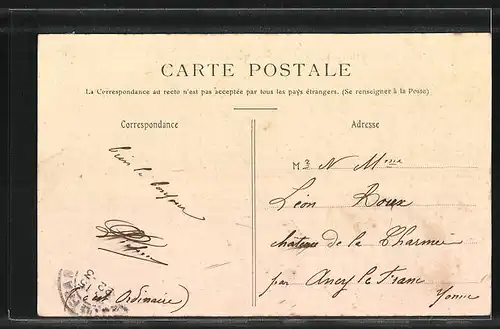 CARTE POSTALE
La Correspondance au recto n'est pas acceptée par tous les pays étrangers. (Se renseigner à la Poste)
Correspondance
Adresse
Bien le bonjour
(est Ordinaire)
Mr N Mme
Léon Roux
château de la Charmée
par Ancy le Franc
Yonne